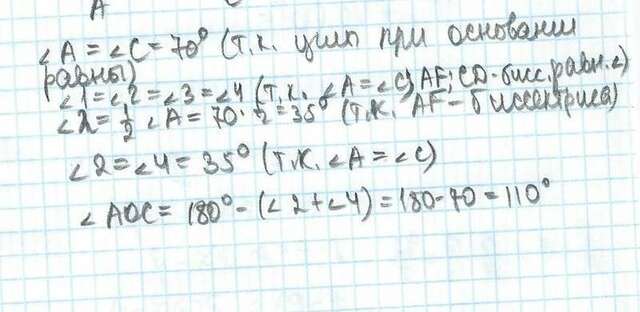 A
∠A = ∠C = 70° (т.к. углы при основании
равны)
∠1 = ∠2 = ∠3 = ∠4 (т.к. ∠A = ∠C, AF; CD - бисс. равн. ∠)
∠2 = 1/2 ∠A = 70 : 2 = 35° (т.к. AF - биссектриса)
∠2 = ∠4 = 35° (т.к. ∠A = ∠C)
∠AOC = 180° - (∠2 + ∠4) = 180 - 70 = 110°